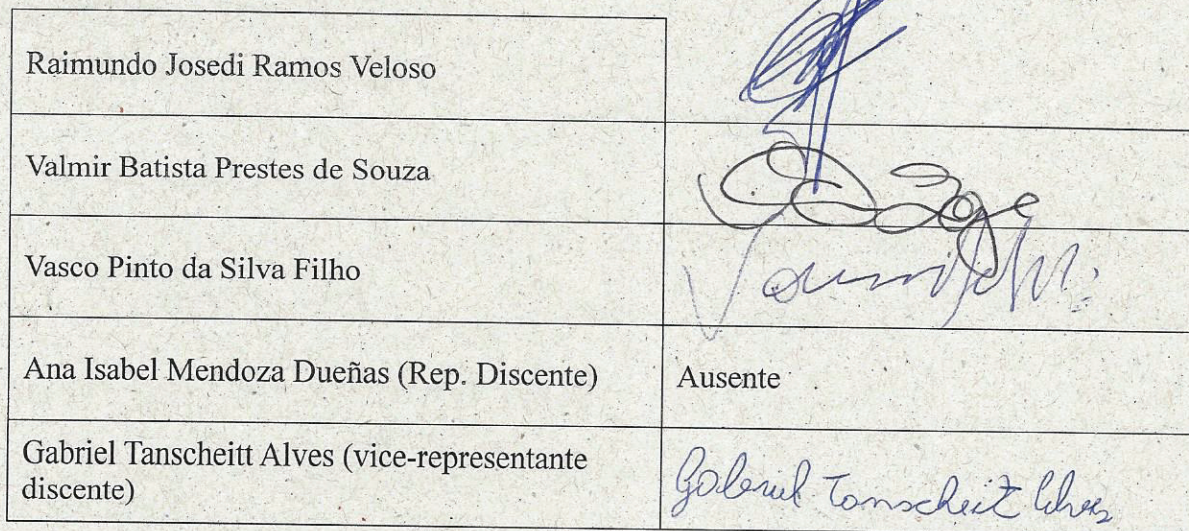 Raimundo Josedi Ramos Veloso
Valmir Batista Prestes de Souza
Vasco Pinto da Silva Filho
Ana Isabel Mendoza Dueñas (Rep. Discente)
Ausente
Gabriel Tanscheitt Alves (vice-representante
discente)
Gabriel Tanscheit Alves